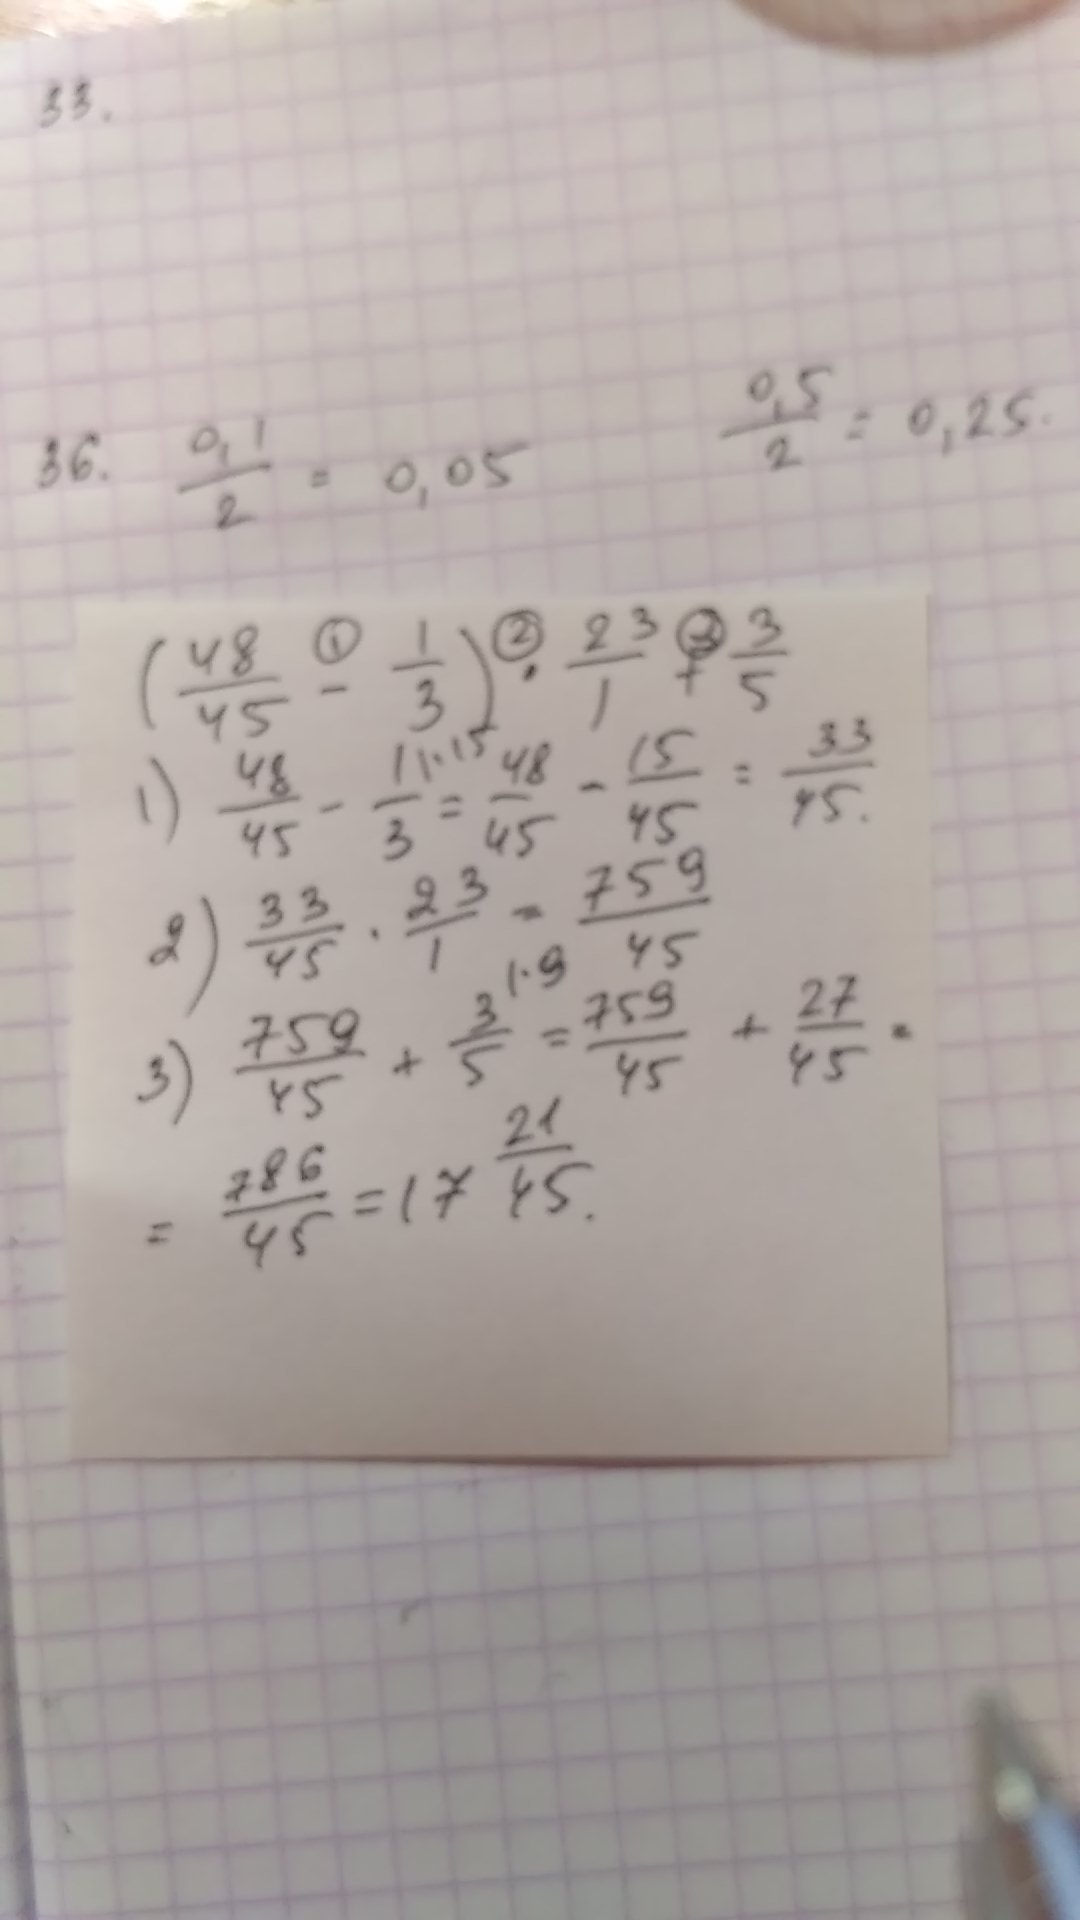 33.
36. 0,1/2 = 0,05 0,5/2 = 0,25.
(48/45 ① - 1/3) ② · 23/1 ③ + 3/5
1) 48/45 - 1/3 |1·15 = 48/45 - 15/45 = 33/45.
2) 33/45 · 23/1 = 759/45
3) 759/45 + 3/5 |1·9 = 759/45 + 27/45 =
= 786/45 = 17 21/45.